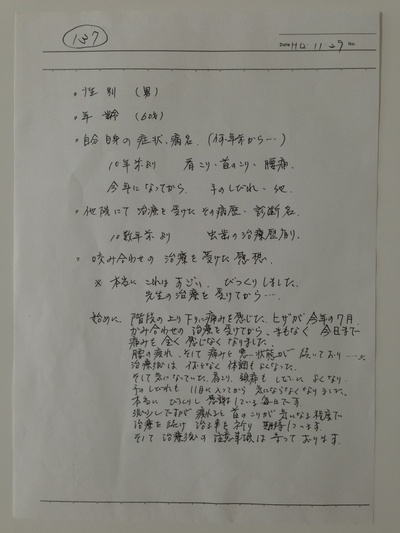 137
Date H12.11.29 No.
。性別 (男)
。年齢 (60才)
。自分自身の症状、病名。(何年前から…)
10年来より 肩こり・首のこり・腰痛
今年になってから。 手のしびれ・他
。他院にて治療を受けたその病歴・診断名。
10数年来より 虫歯の治療歴有り。
。咬み合わせの治療を受けた感想。
※ 本当にこれはすごい、びっくりしました。
先生の治療を受けてから…。
始めに、階段の上り下りに痛みを感じた、ヒザが今年の7月
かみ合わせの治療を受けてから、まもなく今日まで
痛みを全く感じなくなりました。
腰の疲れ、そして痛みと悪い状態が続いており…
治療後は何となく体調もよくなった。
そして気になっていた、肩こり、頭痛もしだいによくなり
手のしびれも11月に入ってから気にならなくなりました。
本当にびっくりし感謝している毎日です
減少してますが疲れると首のこりが気になる程度で
治療を続け治る事を祈り期待しつつます。
そして治療後の注意事項は守っております。